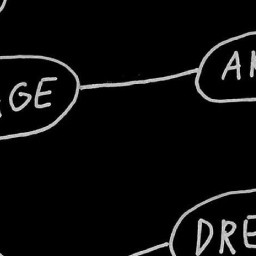 GE A
DRE